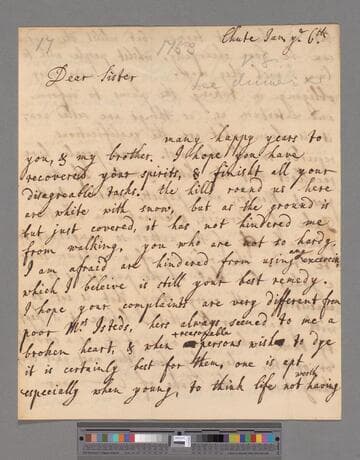 17
1768
Chute Jan yᵉ 6ᵗʰ
Dear Sister
many happy years to
you, & my brother. I hope you have
recovered your spirits, & finisht all your
disagreable tasks. the hills round us here
are white with snow, but as the ground is
but just covered, it has not hindered me
from walking, you who are not so hardy,
I am afraid are hindered from using any exercise
which I beleive is still your best remedy.
I hope your complaints are very different from
poor Mʳˢ Isteds, hers always seemed to me a
broken heart, & when reasonable persons wish to dye
it is certainly best for them, one is apt
especially when young, to think life not worth having